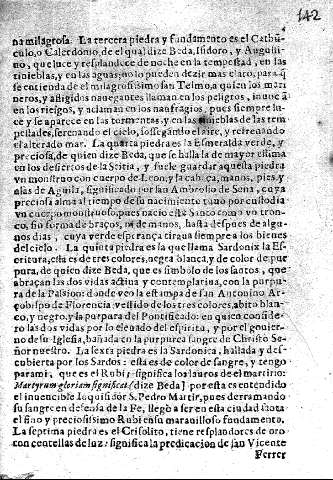 142
na milagrosa. La tercera piedra y fundamento es el Carbũ-
culo, o Calcedonio, de el qual dize Beda, Isidoro, y Augusti-
no, que luze y resplandece de noche en la tempestad, en las
tinieblas, y en las aguas; no lo pueden dezir mas claro, para q̃
se entienda de el milagrosissimo san Telmo, a quien los mari
neros, y afligidos nauegantes llaman en los peligros, inuocã
en los riesgos, y aclaman en los naufragios, pues siempre lu-
ze y se aparece en las tormentas, y en las tinieblas de las tem
pestades, serenando el cielo, sossegando el aire, y refrenando
el alterado mar. La quarta piedra es la Esmeralda verde, y
preciosa, de quien dize Beda, que se halla de mayor estima
en los desiertos de la Scitia, y suele guardar aquesta piedra
vn monstruo con cuerpo de Leon, y la cabeça, manos, pies, y
alas de Aguila, significado por san Ambrosio de Sena, cuya
preciosa alma al tiempo de su nacimiento tuuo por custodia
vn cuerpo monstruoso, pues nacio este Santo como vn tron-
co, sin forma de braços, ni de manos, hasta despues de algu-
nos dias, cuya verde esperança tiraua siempre a los bienes
del cielo. La quinta piedra es la que llama Sardonix la Es-
critura, esta es de tres colores, negra, blanca, y de color de pur
pura, de quien dize Beda, que es simbolo de los santos, que
abraçan las dos vidas actiua y contemplatiua, con la purpu-
ra de la Passion: a donde veo la estampa de san Antonino Ar-
çobispo de Florencia, vestido de los tres colores, abito blan-
co, y negro, y la purpura del Pontificado: en quien conside-
ro las dos vidas por lo eleuado del espiritu, y por el gouier-
no de su Iglesia, bañada en la purpurea sangre de Christo Se-
ñor nuestro. La sexta piedra es la Sardonica, hallada y des-
cubierta por los Sardos: esta es de color de sangre, y tengo
para mi, que es el Rubi: significa los lauros de el martirio:
Martyrum gloriam significat (dize Beda) por esta es entendido
el inuencible Inquisidor S. Pedro Martir, pues derramando
su sangre en defensa de la Fe, llegò a ser en esta ciudad santa
el fino y preciosissimo Rubi en su marauilloso fundamento.
La septima piedra es el Crisolito, tiene resplandores de oro
con centellas de luz: significa la predicacion de san Vicente
Ferrer